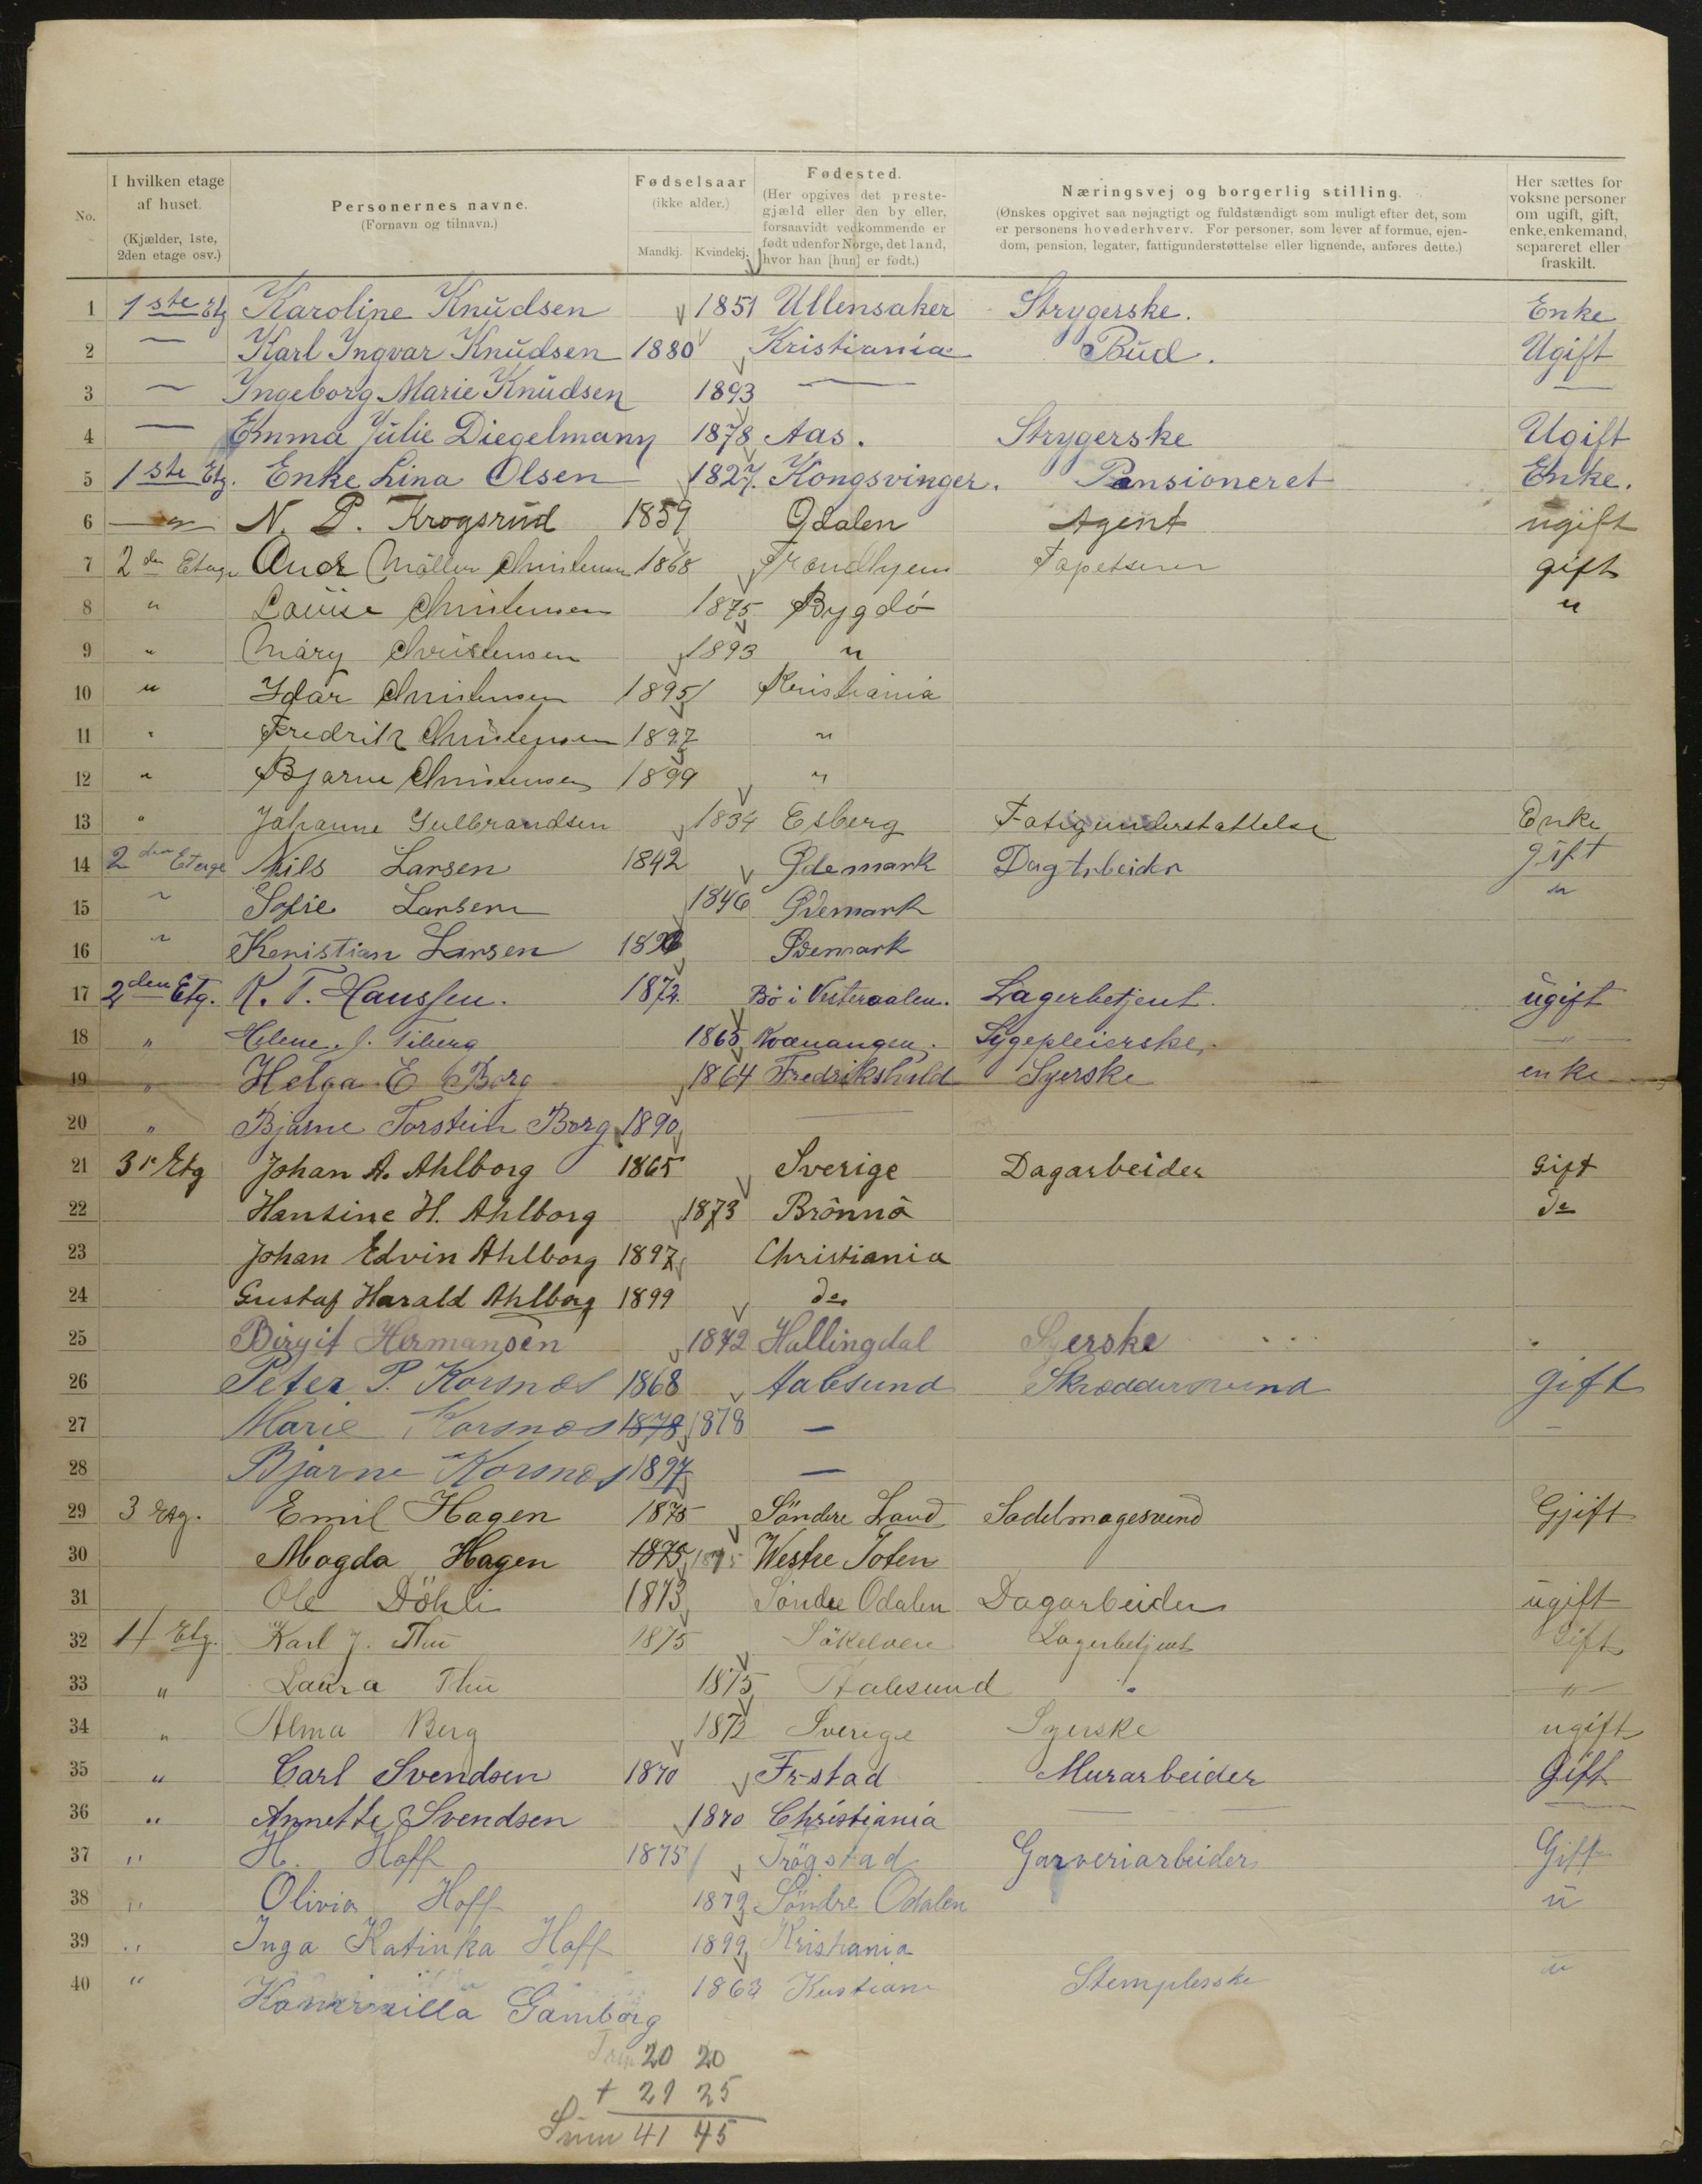 No.
I hvilken etage af huset. (Kjælder, 1ste, 2den etage osv.)
Personernes navne. (Fornavn og tilnavn.)
Fødselsaar (ikke alder.) Mandkj. Kvindekj.
Fødested. (Her opgives det prestegjæld eller den by eller, forsaavidt vedkommende er født udenfor Norge, det land, hvor han [hun] er født.)
Næringsvej og borgerlig stilling. (Ønskes opgivet saa nøjagtigt og fuldstændigt som muligt efter det, som er personens hovederhverv. For personer, som lever af formue, ejendom, pension, legater, fattigunderstøttelse eller lignende, anføres dette.)
Her sættes for voksne personer om ugift, gift, enke, enkemand, separeret eller fraskilt.
1 1ste Etg Karoline Knudsen 1851 Ullensaker Strygerske. Enke
2 — Karl Ingvar Knudsen 1880 Kristiania Bud. Ugift
3 — Ingeborg Marie Knudsen 1893 — —
4 — Emma Julie Diegelmann 1878 Aas. Strygerske Ugift
5 1ste Etg. Enke Lina Olsen 1827. Kongsvinger. Pensioneret Enke.
6 — " — N. P. Krogsrud 1859 Odalen Agent ugift
7 2den Etage Møller Christensen 1868 Trondhjem Tapetserer gift
8 " Louise Christensen 1875 Bygdö "
9 " Mary Christensen 1893 "
10 " Idar Christensen 1895 Kristiania
11 " Fredrik Christensen 1897 "
12 " Bjarne Christensen 1899 "
13 " Johanne Gulbrandsen 1834 Esberg Fatigunderstattelse Enke
14 2den Etage Nils Larsen 1842 Ødemark Dagarbeider gift
15 " Sofie Larsen 1846 Ødemark "
16 " Kenistian Larsen Ødemark
17 2den Etg. K. T. Hanssen. 1872. Bö i Vesteraalen. Lagerbetjent. ugift
18 " Helene J. Tiberg 1865 Kvænangen. Sygepleierske. — " —
19 " Helga E Borg 1864 Fredrikshald Syerske enke
20 " Bjarne Torstein Borg 1890 —
21 3die Etg Johan A. Ahlborg 1865 Sverige Dagarbeider Gift
22 Hansine H. Ahlborg 1873 Brönnö do
23 Johan Edvin Ahlborg 1897 Christiania
24 Gustaf Harald Ahlborg 1899 do
25 Birgit Hermansen 1872 Hallingdal Syerske "
26 Peter P. Korsnæs 1868 Aalesund Skræddersvend gift
27 Marie Korsnæs 1878 1878 — —
28 Bjarne Korsnæs 1897 —
29 3 Etg. Emil Hagen 1875 Söndre Land Sadelmagesvend Gjift
30 Magda Hagen 1875 1875 Westre Toten
31 Ole Döhli 1873 Söndre Odalen Dagarbeider ugift
32 4 Etg. Karl J. Thu 1875 Lagerbetjent Gift
33 " Laura Thu 1875 Aalesund " — " —
34 " Alma Berg 1872 Sverige Syerske ugift
35 " Carl Svendsen 1870 Fr-stad Murarbeider Gift
36 " Annette Svendsen 1870 Christiania — —
37 " H. Hoff 1875 Trögstad Garveriarbeider Gift
38 " Olivia Hoff 1873 Söndre Odalen "
39 " Inga Katinka Hoff 1899 Kristiania
40 " Gamborg 1863 Kristiania Stemplerske "
20 20
+ 21 25
Sum 41 45